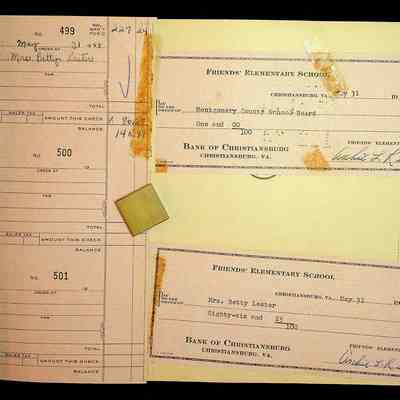 NO. 499
227 24
May 31
ORDER OF
Mrs. Betty Lester
FOR
TOTAL
SALES TAX
AMOUNT THIS CHECK
BALANCE
NO. 500
19
ORDER OF
FOR
TOTAL
SALES TAX
AMOUNT THIS CHECK
BALANCE
NO. 501
19
ORDER OF
FOR
TOTAL
SALES TAX
AMOUNT THIS CHECK
BALANCE
FRIENDS' ELEMENTARY SCHOOL
CHRISTIANSBURG, VA. May 31
PAY TO THE ORDER OF
Montgomery County School Board
One and 00
100
BANK OF CHRISTIANSBURG
CHRISTIANSBURG, VA.
FRIENDS' ELEMEN
FRIENDS' ELEMENTARY SCHOOL
CHRISTIANSBURG, VA. May 31
PAY TO THE ORDER OF
Mrs. Betty Lester
Eighty-six and 83
100
BANK OF CHRISTIANSBURG
CHRISTIANSBURG, VA.
FRIENDS' ELEMEN